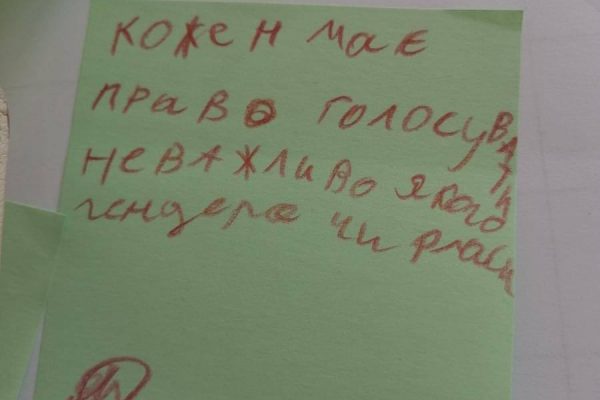 кожен має
право голосувати
неважливо якого
гендера чи раси